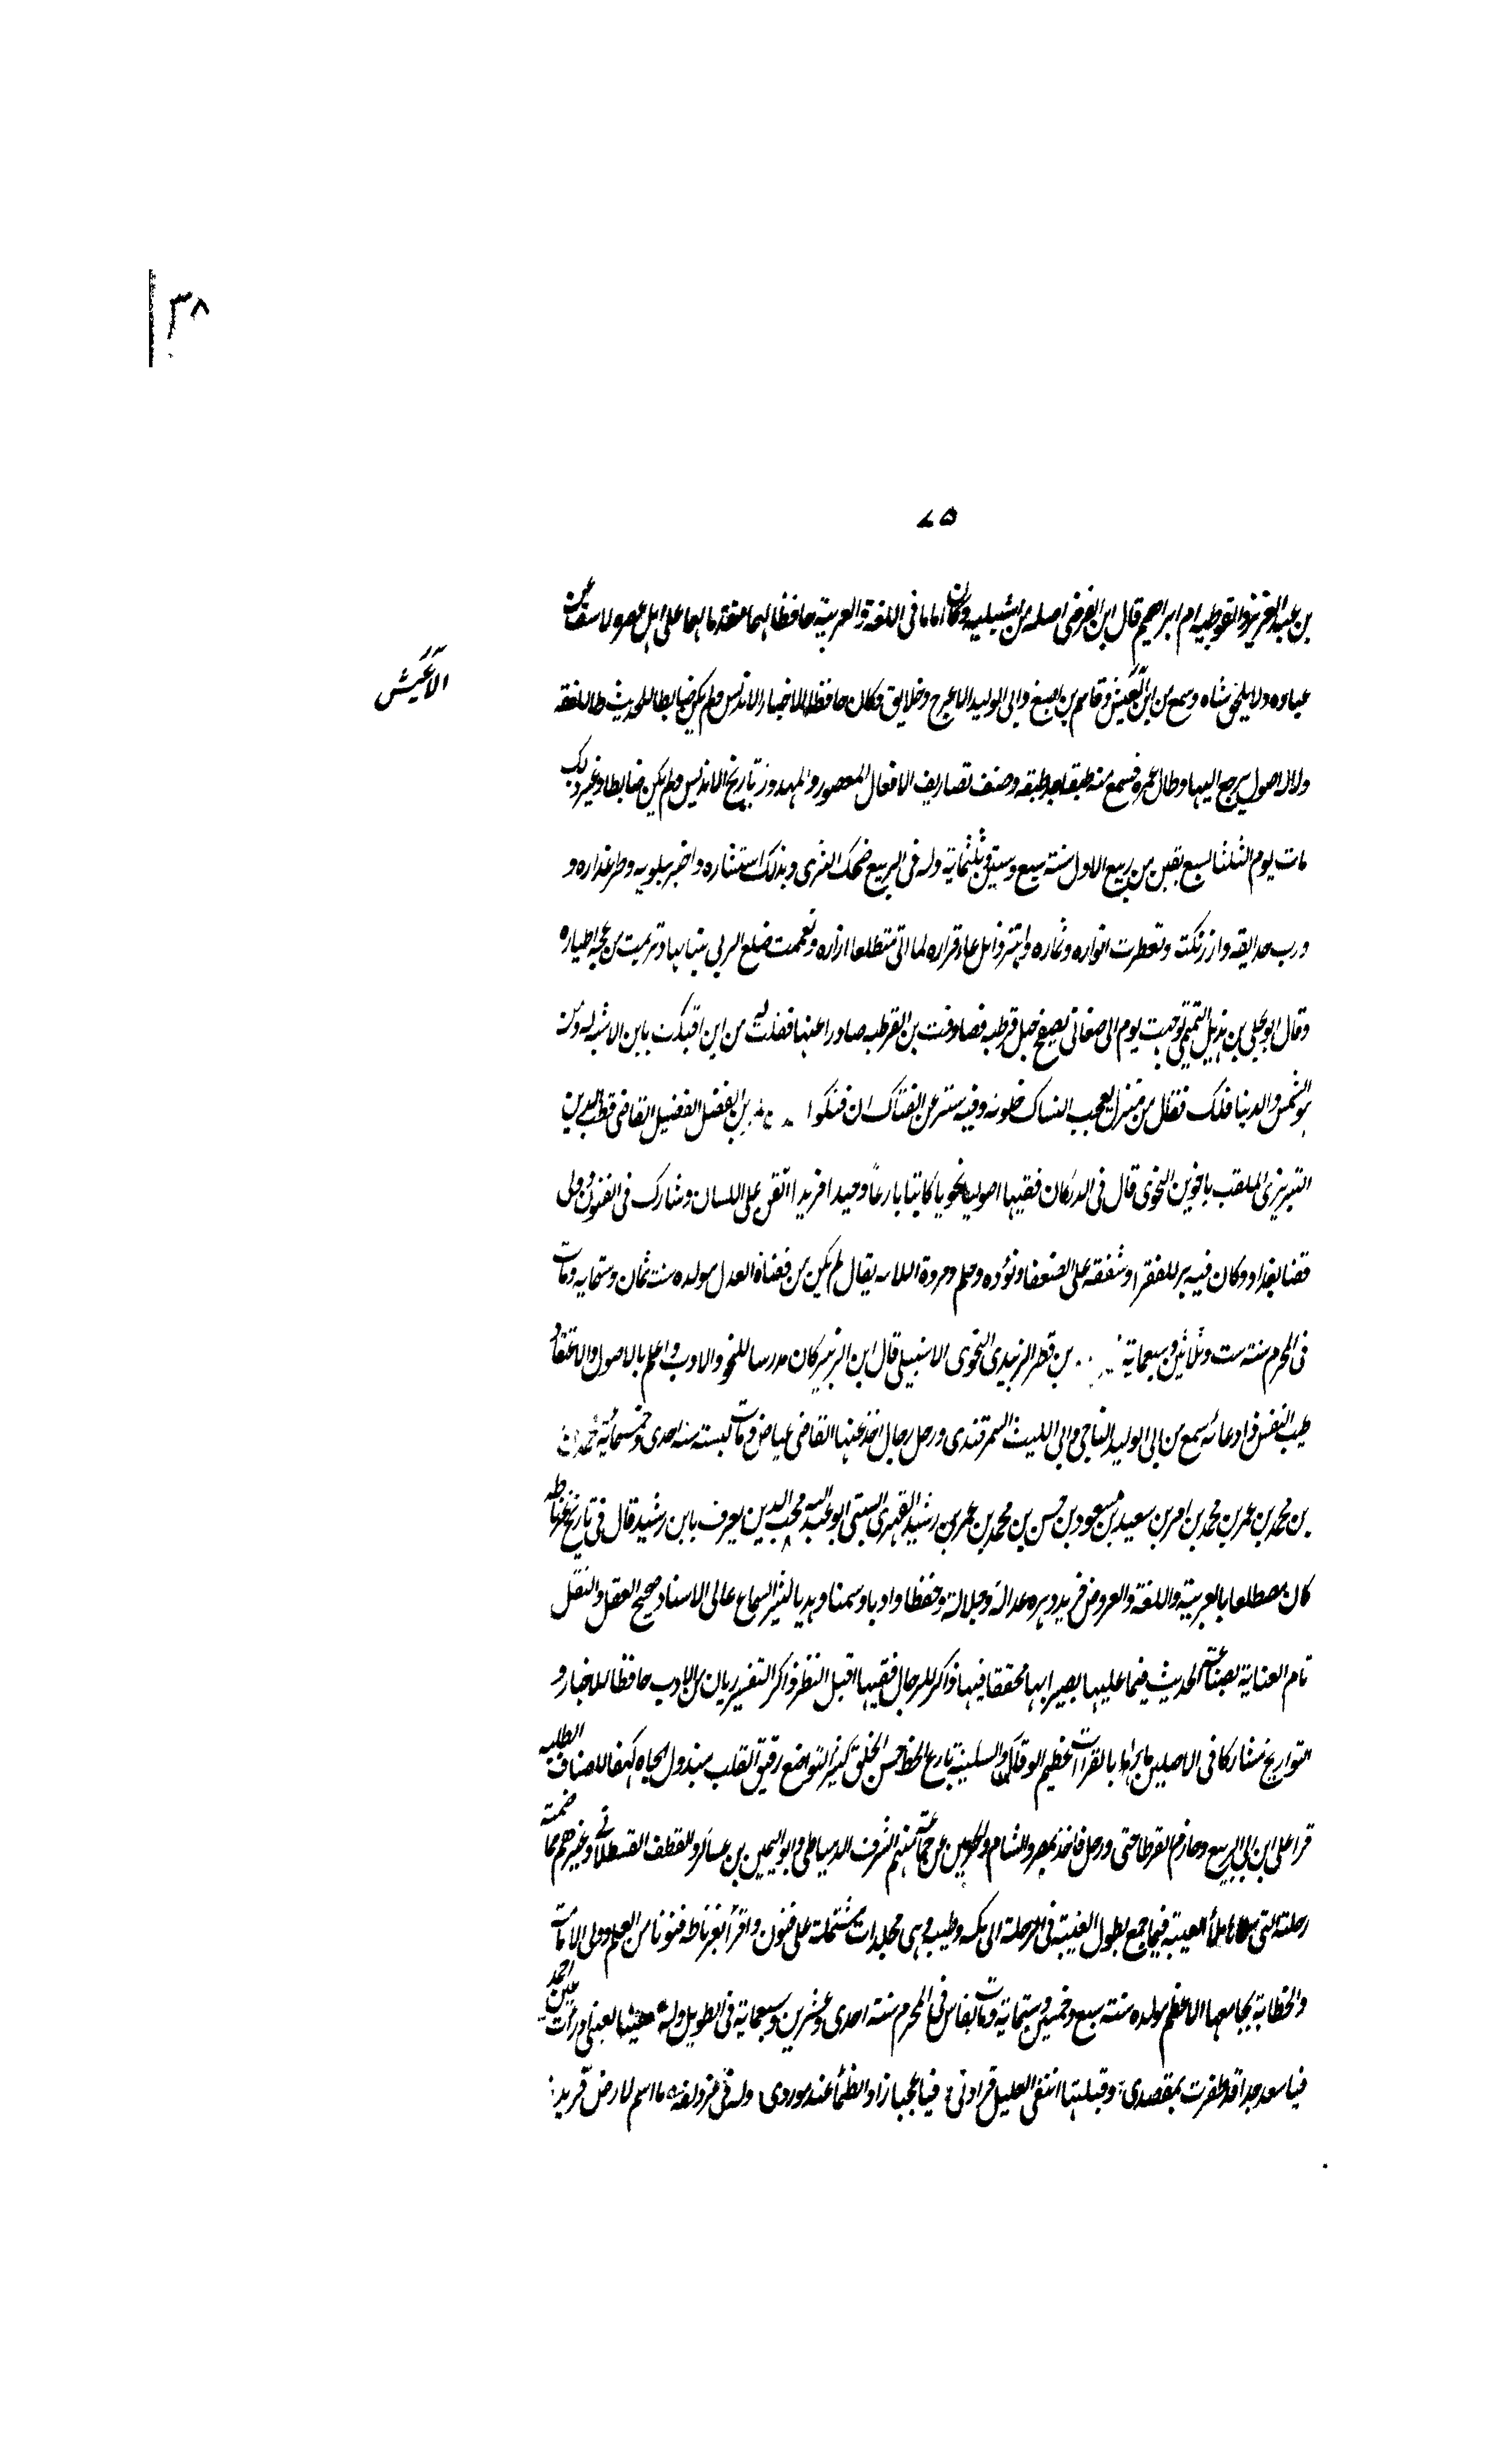 ٣٨
٧٥
بن عبد العزيز والقوطيه ام ابراهيم قال ابن الفرضى اصله من اشبيليه وكان اماما فى اللغة والعربية حافظا لهما مقدما بهما على اهل عصره لا يشق
الأغبش
غباره ولا يلحق شاه وسمع من ابن الأغبش وقاسم بن اصبغ وابى الوليد الاعرج وخلايق وكان حافظا لاخبار الاندلس ولم يكن ضابطا للحديث والفقه
ولا له اصول يرجع اليها وطال عمره فسمع منه طبقة بعد طبقه وصنف تصاريف الافعال المقصور والممدود تاريخ الاندلس ولم يكن ضابطا وغير ذلك
مات يوم الثلثا لسبع بقين من ربيع الاول سنة سبع وستين وثلثماية وله فى الربيع ضحك الثرى وبدلك استبشاره واخضر شاربه وطر عذاره و
ورب حدايقه وازرنكت وتعطرت انواره وثماره واهتز ذابل ماء قراره لما اتى متطلعا ازاره وتعممت ضلع الربى بنباتها وترنمت من عجبه اطياره
وقال ابو يحيى بن هذيل التميمى توجهت يوم الى ضيعتى بصفح جبل قرطبه فصادفت بن القوطيه صادرا عنها فقلت له من اين اقبلت يا من لا شبيه له ومن
هو الشمس والدنيا فلك فقال من منزل يعجب النساك خلوته وفيه ستر عن الفتاك ان فتكوا بن الفضل الفضيل القاضى قطب الدين
التبريزى الملقب باخوين النحوى قال فى الدرر كان فقيها اصوليا نحويا كاتبا بارعاً وحيدا فريدا اتقن على اللسان وشارك فى الفنون وولى
قضا بغداد وكان فيه بر للفقرا وشفقه على الضعفا وتؤده وحلم ومروة الا انه يقال لم يكن من قضاة العدل مولده سنة ثمان وستمايه ومات
فى المحرم سنة ست وثلاثين وسبعماية بن قطر الزبيدى النحوى الاشبيلى قال ابن الزبير كان مدرسا للنحو والادب واعلم بالاصول والاعتقاد
طيب النفس فى ادعائه سمع من ابى الوليد الباجى وابى الليث السمرقندى ورحل رجال اخذ عنها القاضى عياض ومات بسبته سنة احدى وخمسمائة محمد بن
بن محمد بن عمر بن محمد بن امر بن سعيد بن مسعود بن حسن بن محمد بن عمر بن رشيد الفهرى السبتى ابو عبد الله محب الدين يعرف بابن رشيد قال فى تاريخ غرناطه
كان مضطلعا بالعربية واللغة والعروض فريد دهره عدالة وجلالة وحفظا وادبا وسمتا وهديا كثير السماع عالى الاسناد صحيح العقل والنقل
تام العناية بصناعة الحديث قيما عليها بصيرا بها محققا فيها ذاكرا للرجال فقيها اقبل النظر ذاكر التفسير ريان من الادب حافظا للاخبار و
التواريخ مشاركا فى الاصلين عارفا بالقرات عظيم الوقار والسكينة بارع الخط حسن الخلق كثير التواضع رقيق القلب مبذول الجاه كهفا لاصناف الطلبه
قرا على ابن ابى الربيع وحازم القرطاجنى ورحل فاخذ بمصر والشام والحرمين عن جماعة منهم الشرف الدمياطى وابو اليمين بن عساكر والقطف القسطلانى وغيرهم مما ضمنه
رحلته التى سماها ملأ العيبه فيما جمع بطول الغيبة فى الرحلة الى مكه وطيبه وهى مجلدات مشتملة على فنون واقرأ بغرناطه فنونا من العلم وولى الامامة
والخطابة بجامعها الاعظم مولده سنة سبع وخمسين وستماية ومات بفاس فى المحرم سنة احدى وعشرين وسبعماية فى الطويل وله هنيئا لعينى ان رأت عين احمد
فيا سعد جدا قد ظفرت بمقصدى وقبلتها اشفى الغليل فزادنى فيا عجبا زاد الظمأ عند موردى وله فى مزدلفه ما اسم لارض فريد